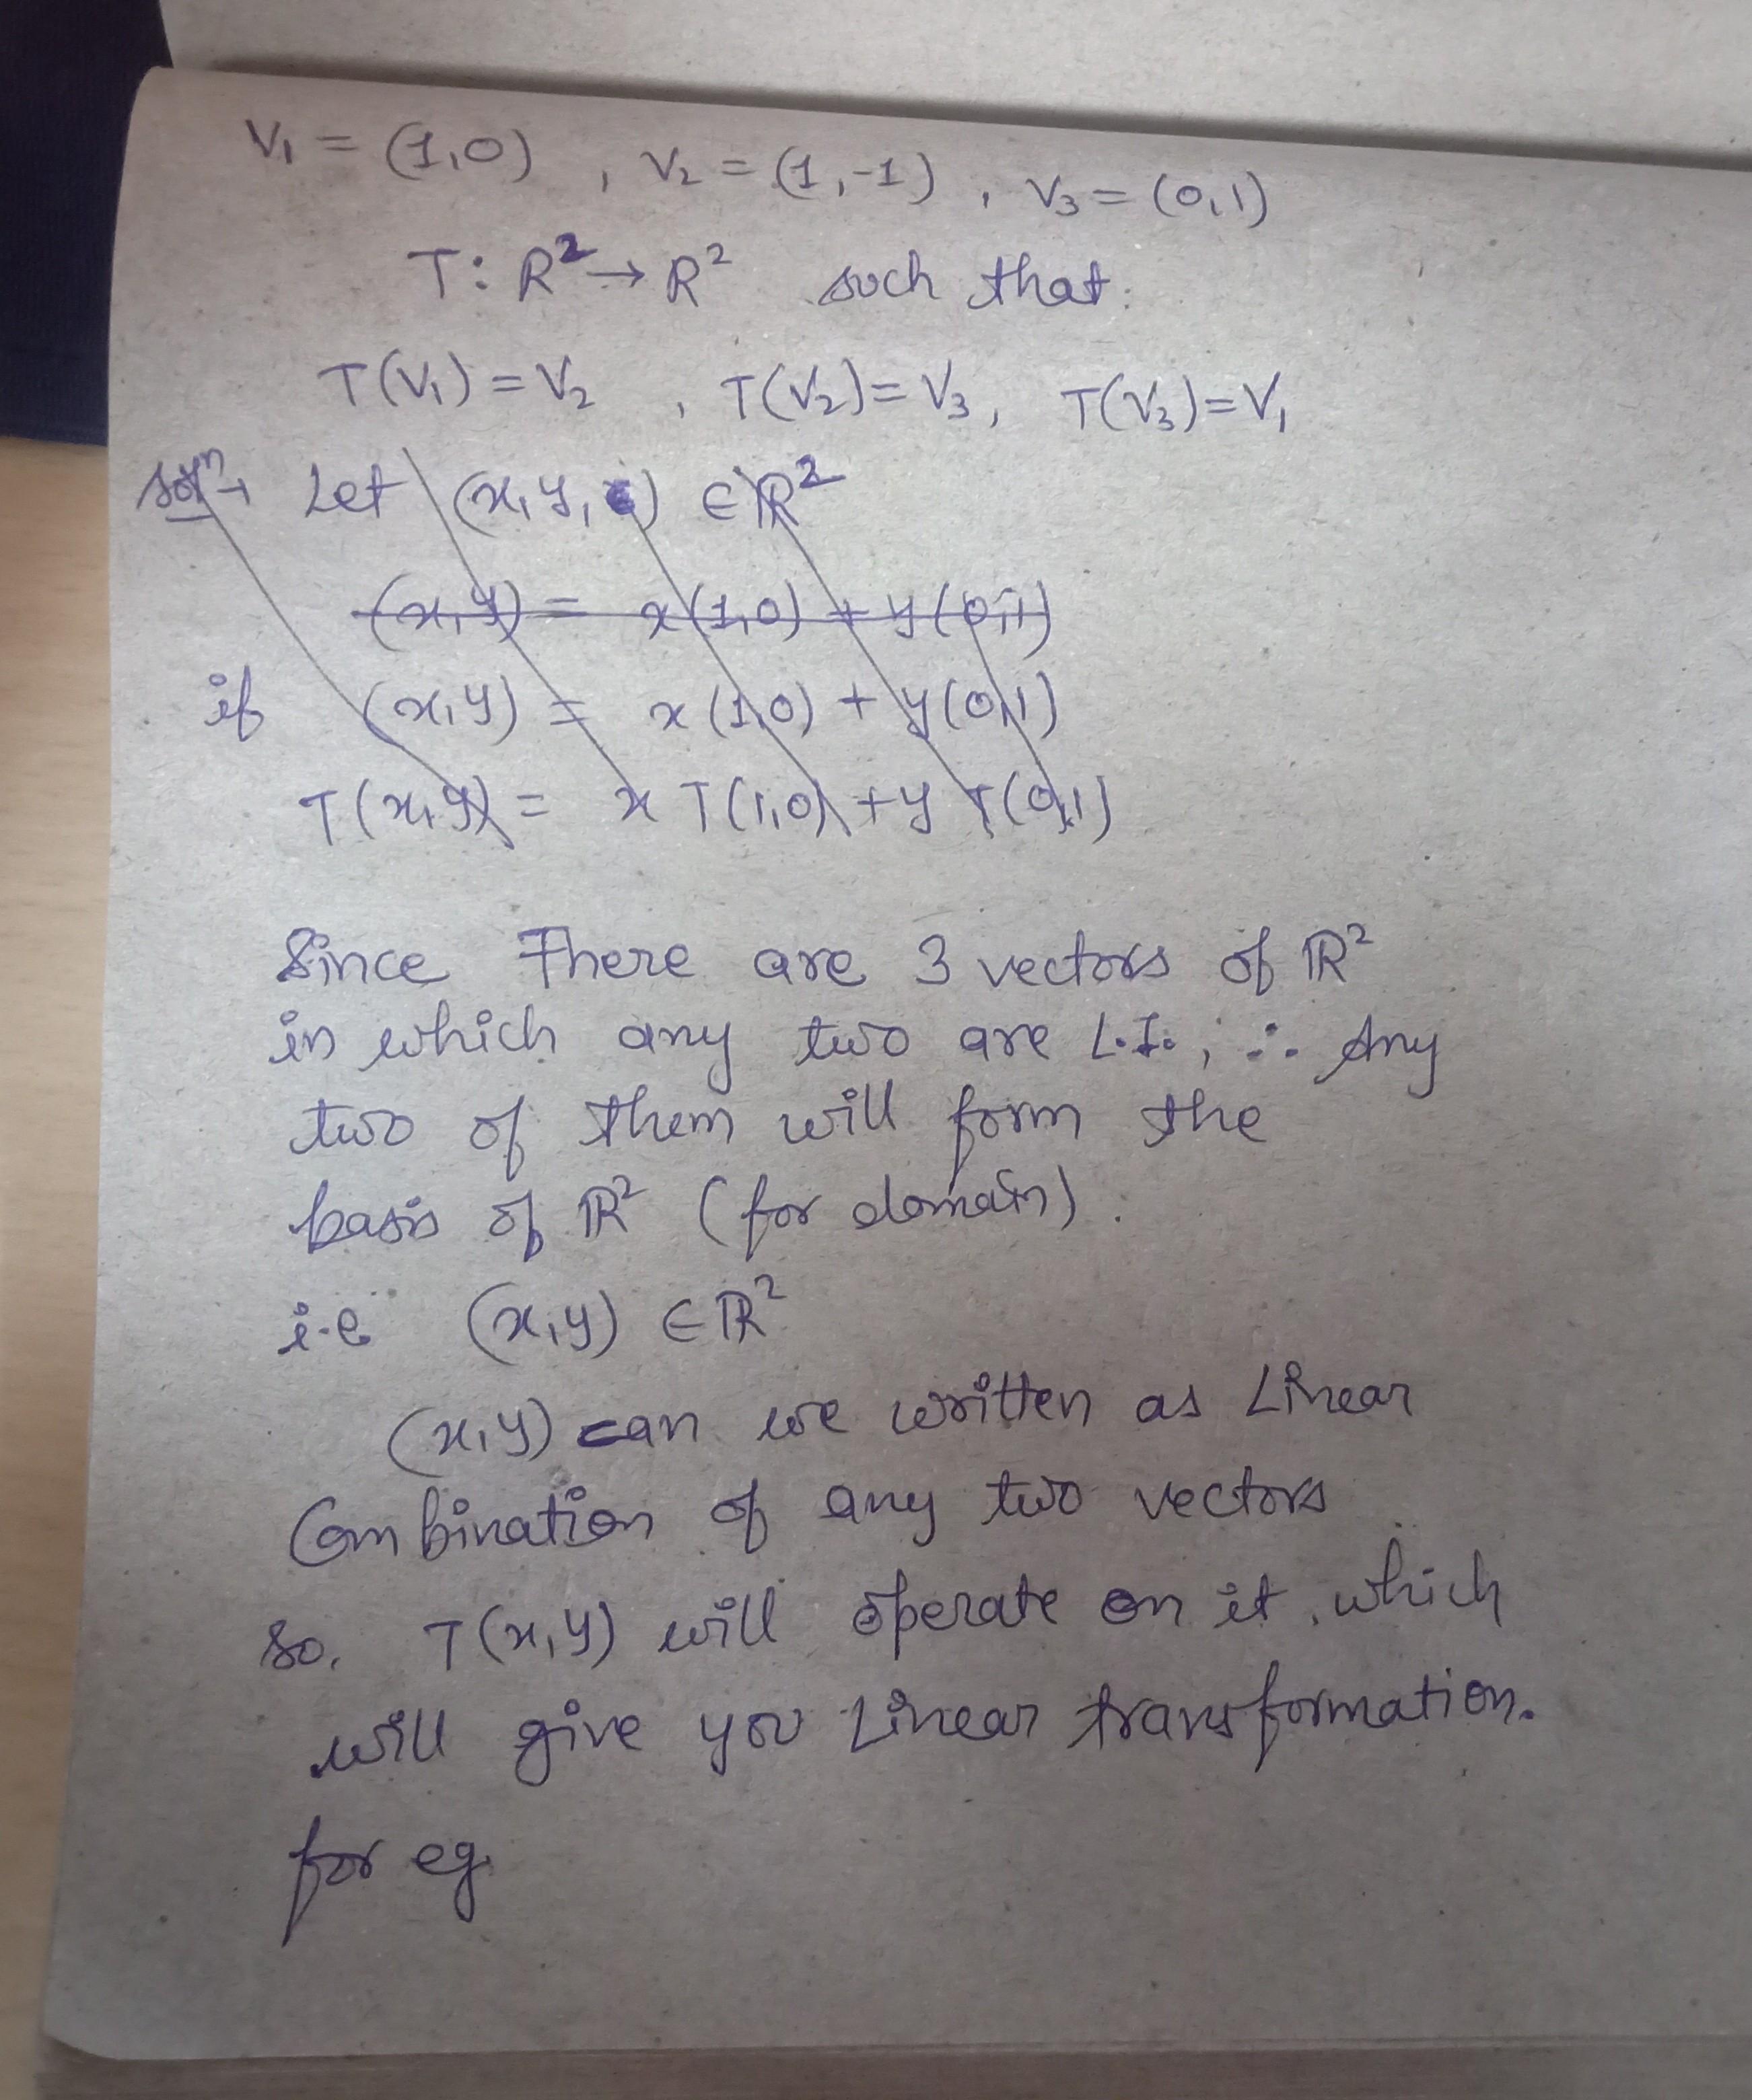 V₁ = (1,0) , V₂ = (1,-1) , V₃ = (0,1)
T: R² → R² such that:
T(V₁) = V₂ , T(V₂) = V₃, T(V₃) = V₁
solⁿ→ Let (x,y, ) ∈ R²
(x,y) = x(1,0) + y(0,1)
if (x,y) = x(1,0) + y(0,1)
T(x,y) = x T(1,0) + y T(0,1)
Since There are 3 vectors of R²
in which any two are L.I.; ∴ Any
two of them will form the
basis of R² (for domain).
i.e (x,y) ∈ R²
(x,y) can we written as Linear
Combination of any two vectors
so, T(x,y) will operate on it which
will give you Linear transformation.
for eg.